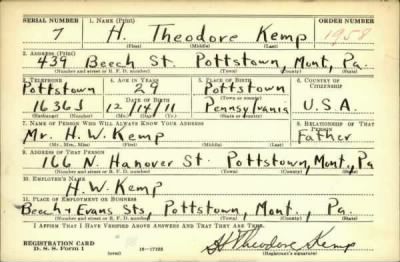 SERIAL NUMBER 1. NAME (Print) ORDER NUMBER
7 H. Theodore Kemp 1958
(First) (Middle) (Last)
2. ADDRESS (Print)
439 Beech St. Pottstown, Mont, Pa.
(Number and street or R. F. D. number) (Town) (County) (State)
3. TELEPHONE 4. AGE IN YEARS 5. PLACE OF BIRTH 6. COUNTRY OF CITIZENSHIP
Pottstown 29 Pottstown
(Town or county)
DATE OF BIRTH
1636J 12 /14 /11 Pennsylvania U.S.A.
(Exchange) (Number) (Mo.) (Day) (Yr.) (State or country)
7. NAME OF PERSON WHO WILL ALWAYS KNOW YOUR ADDRESS 8. RELATIONSHIP OF THAT PERSON
Mr. H. W. Kemp Father
(Mr., Mrs., Miss) (First) (Middle) (Last)
9. ADDRESS OF THAT PERSON
166 N. Hanover St. Pottstown, Mont, Pa
(Number and street or R. F. D. number) (Town) (County) (State)
10. EMPLOYER'S NAME
H. W. Kemp
11. PLACE OF EMPLOYMENT OR BUSINESS
Beech & Evans Sts, Pottstown, Mont., Pa.
(Number and street or R. F. D. number) (Town) (County) (State)
I AFFIRM THAT I HAVE VERIFIED ABOVE ANSWERS AND THAT THEY ARE TRUE.
REGISTRATION CARD
D. S. S. FORM 1 16—17105 H Theodore Kemp
(over) (Registrant's signature)